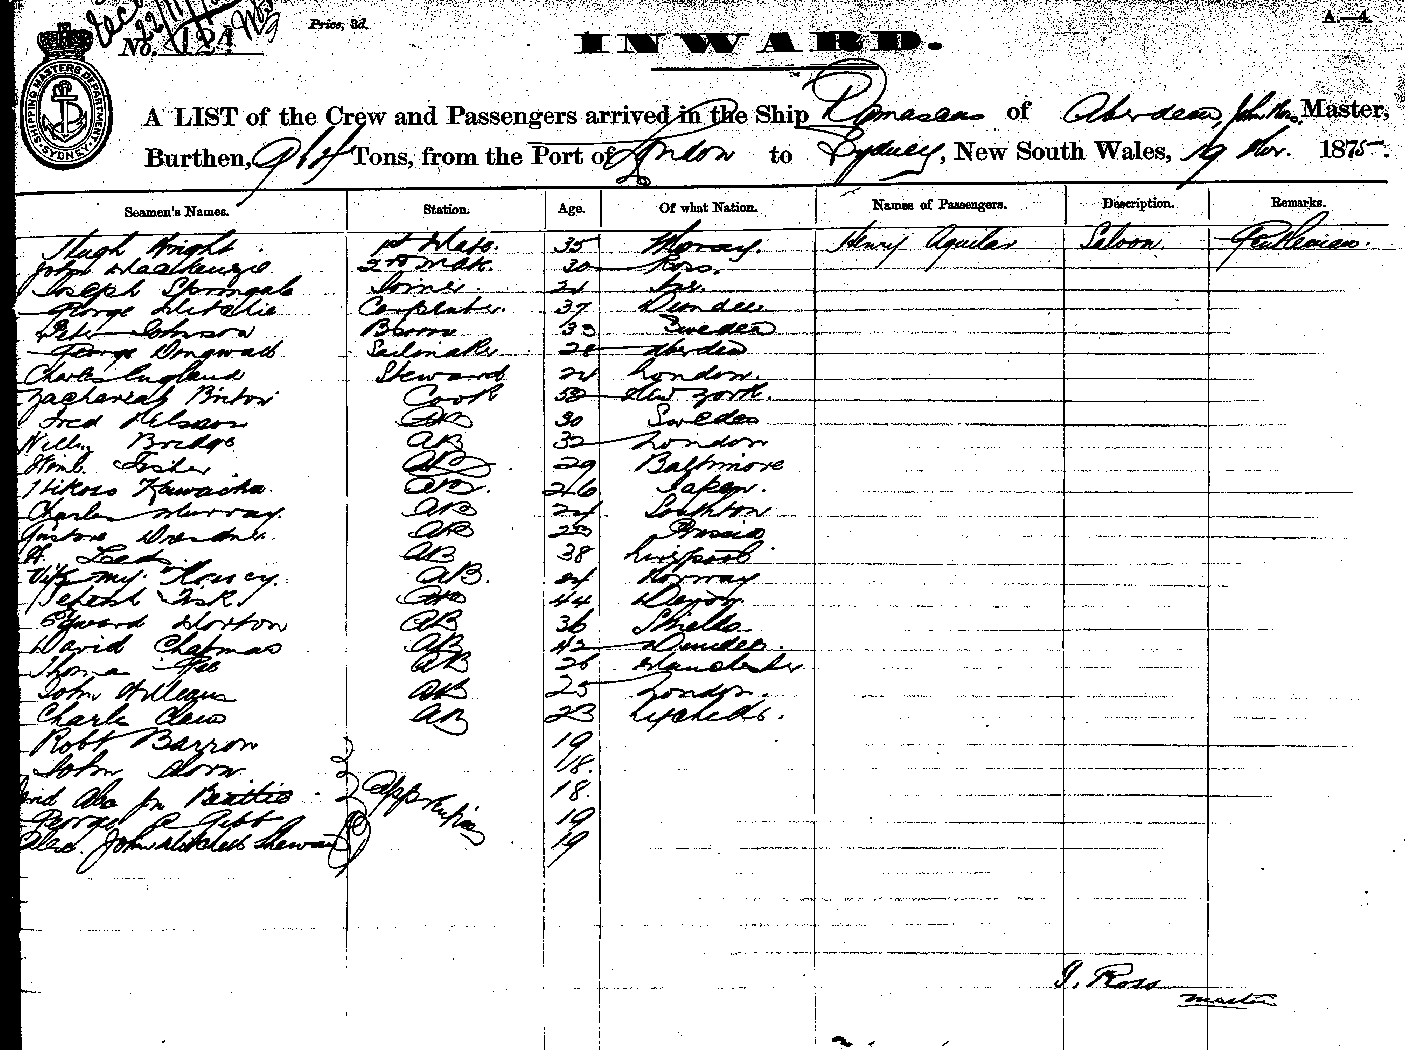 No. 184
Price, 3d.
A.—4.
INWARD.
SHIPPING MASTERS DEPARTMENT SYDNEY
A LIST of the Crew and Passengers arrived in the Ship Damascus of Aberdeen, John Ross, Master,
Burthen, 964 Tons, from the Port of London to Sydney, New South Wales, 19 Nov. 1875.
Seamen's Names. Station. Age. Of what Nation. Names of Passengers. Description. Remarks.
Hugh Wright 1st Mate. 35 Moray. Henry Aguilar Saloon Gentleman.
John Mackenzie 2nd Mate. 30 Ross.
Joseph
George Carpenter. 37 Dundee
Peter Johnson 33 Sweden
George Dingwall Sailmaker 28 Aberdeen
Charles England Steward 24 London.
Zachariah Briton Cook 52 New York.
Fred Nilsson AB 30 Sweden
Willm Bridge AB 32 London
Fisher AB 29 Baltimore
AB. 26 Japan.
Charles Murray. AB 24 Southton
Gustave AB Prussia
H. AB 38 Liverpool
AB. Norway
Fisk AB 44 Devon
Edward Morton AB 36 Shields
David Chapman AB 42 Dundee.
Thomas AB 26 Manchester
John AB 25 London.
Charles Clews AB 23 Lichfield.
Robt Barron 19
John 18.
Beattie Apprentices 18.
George Gibb 19
Alex. John Mitchell Shewan 19
J. Ross
master